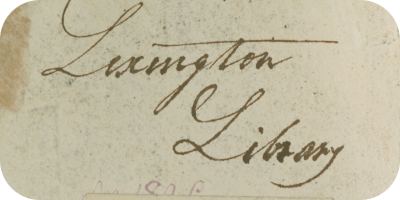 Lexington
Library